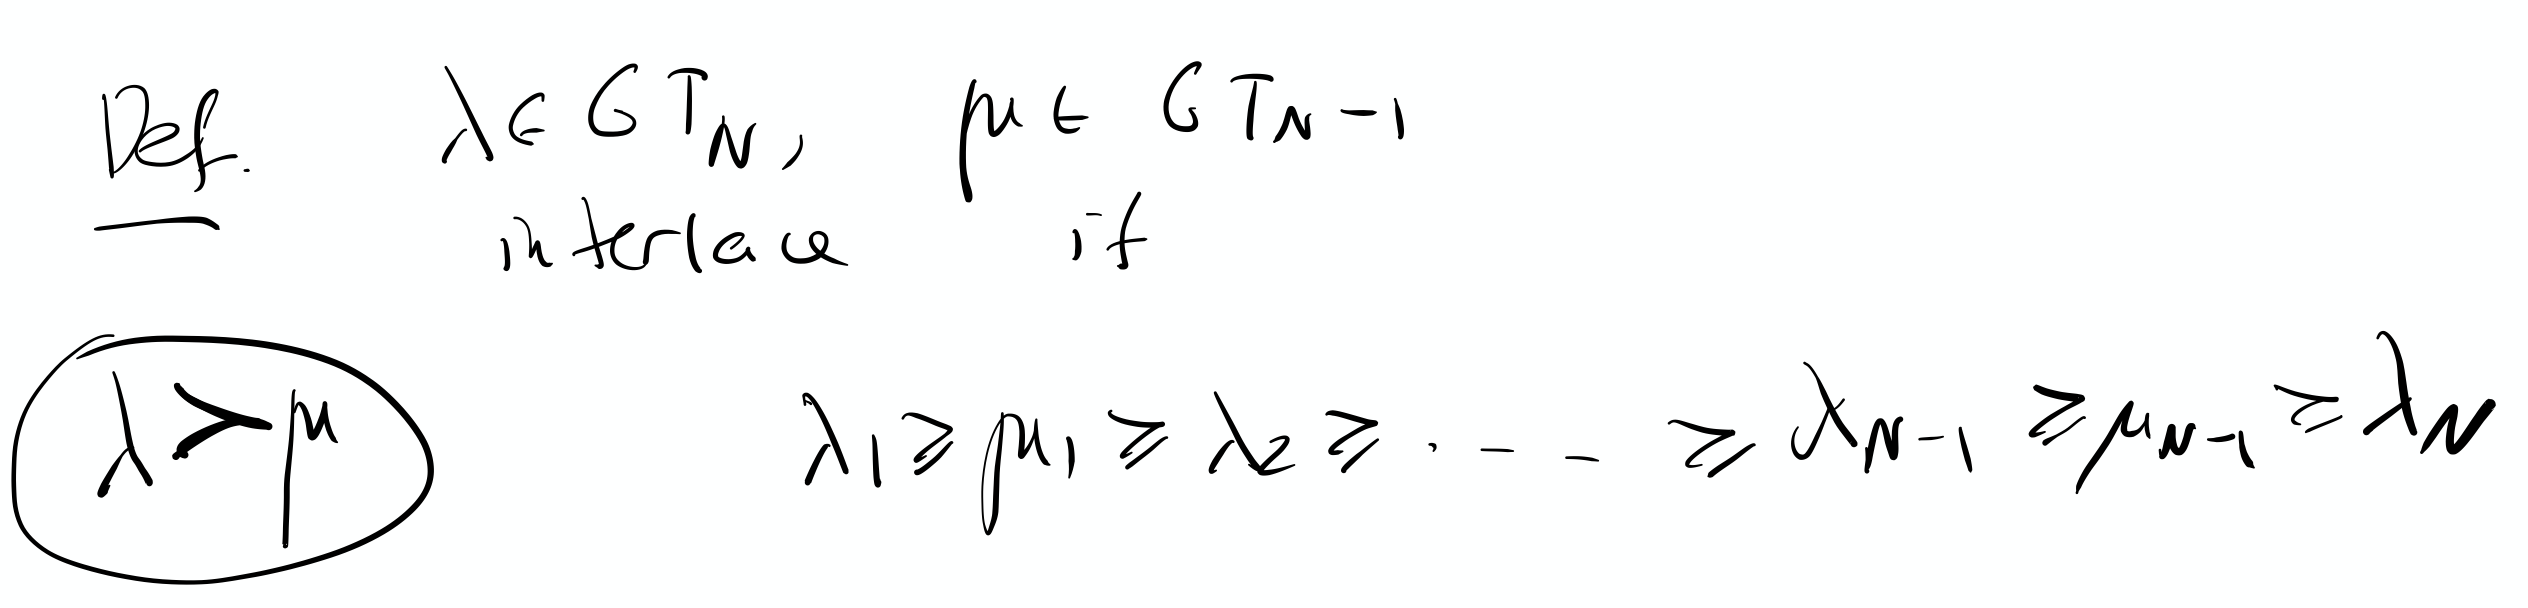 Def. λ ∈ GT_N, μ ∈ GT_{N-1}
interlace if
λ ≻ μ λ_1 ⩾ μ_1 ⩾ λ_2 ⩾ . - - ⩾ λ_{N-1} ⩾ μ_{N-1} ⩾ λ_N